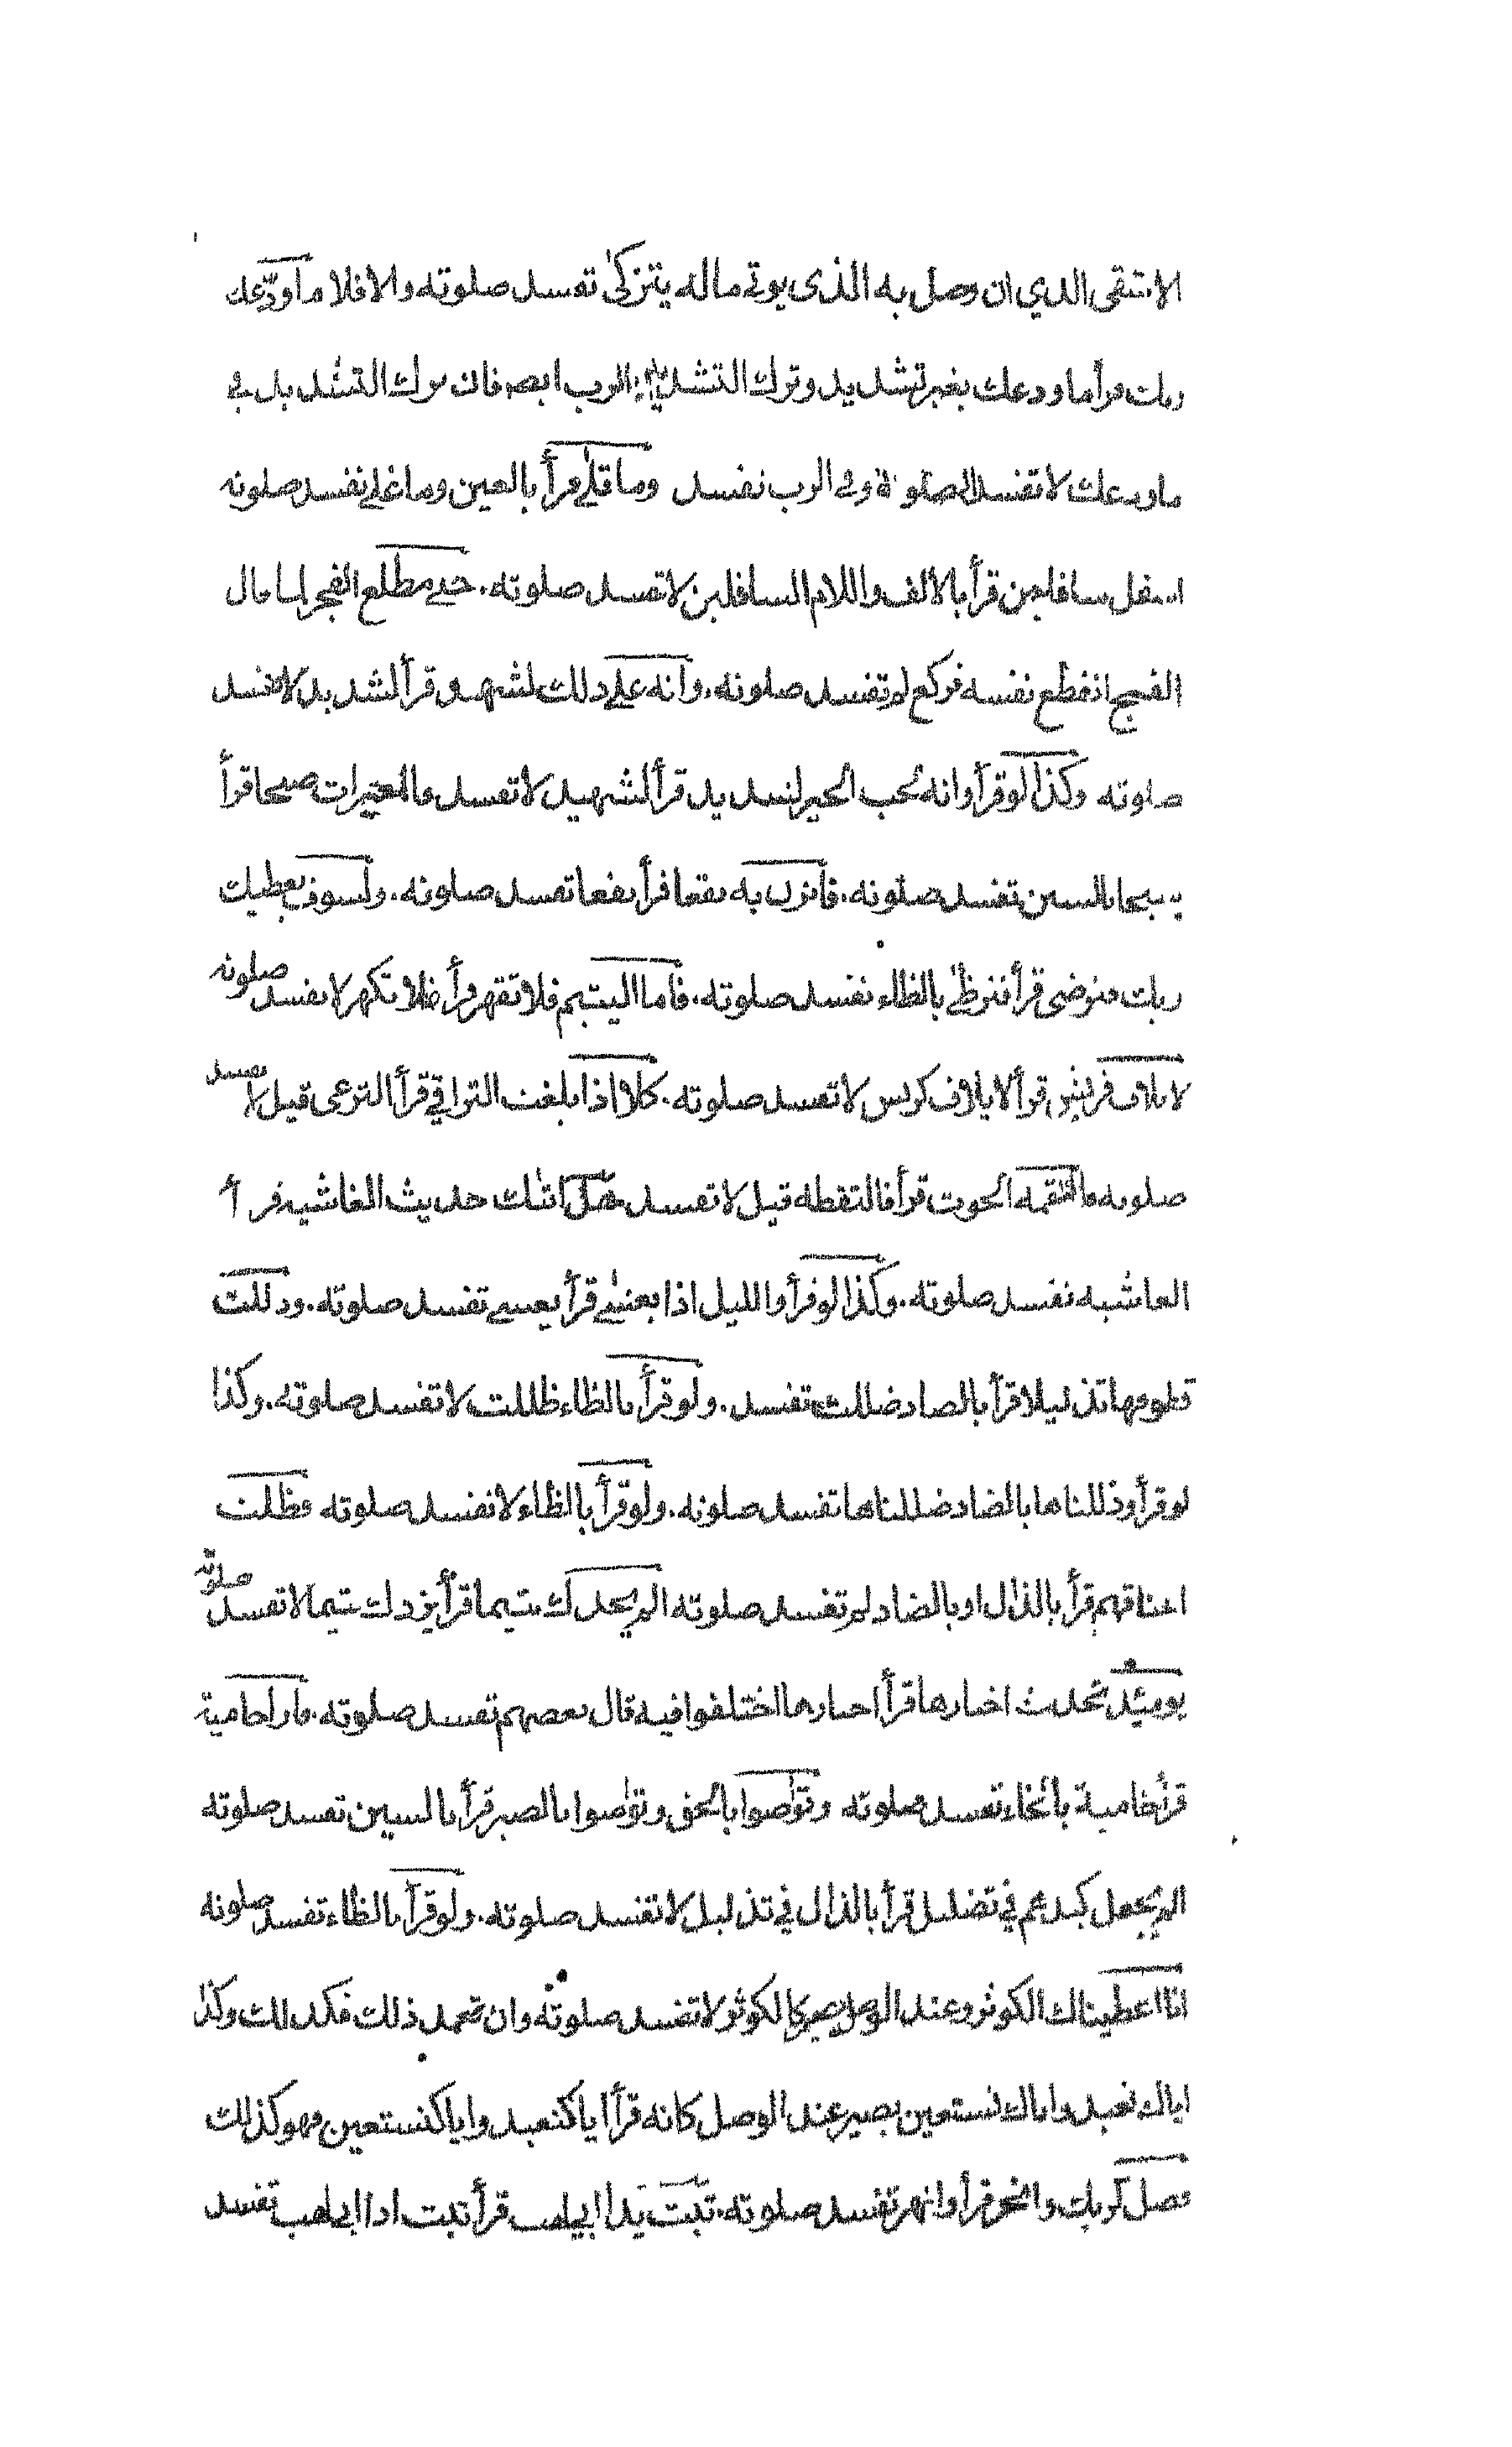 الاتقى الذي ان وصل به الذى يوتى ماله يتزكى تفسد صلوته والا فلا ما ودّعك
ربك قرأ ما ودعك بغير تشديد وترك التشديد الرب ايضا فان ترك التشديد في
ما ودعك لا تفسد الصلوة وفى الرب تفسد وما قلى قرأ بالعين وما غلى تفسد صلوته
اسفل سافلين قرأ بالالف واللام السافلين لا تفسد صلوته. حتى مطلع الفجر لما قال
الفجح انقطع نفسه فركع لم تفسد صلوته. وانه على ذلك لشهيد قرأ لشديد لا تفسد
صلوته وكذا لو قرأ وانه لحب الخير لشديد قرأ لشهيد لا تفسد فالمغيرات صبحا قرأ
سبحا بالسين تفسد صلوته. فاثرن به نقعا قرأ نفعا تفسد صلوته. ولسوف يعطيك
ربك فترضى قرأ فترظى بالظاء تفسد صلوته. فاما اليتيم فلا تقهر قرأ فلا تكهر لا تفسد صلوته
لايلاف قريش قرأ لايلاف كريس لا تفسد صلوته. كلا اذا بلغت التراقي قرأ الترعى قيل لا تفسد
صلوته فالتقمه الحوت قرأ فالتقطه قيل لا تفسد هل اتىك حديث الغاشيه قرأ
العاشيه تفسد صلوته. وكذا لو قرأ والليل اذا يغشى قرأ يعسى تفسد صلوته. وذللت
قطوفها تذليلا قرأ بالضاد ضللت تفسد. ولو قرأ بالظاء ظللت لا تفسد صلوته. وكذا
لو قرأ وذللناها بالضاد ضللناها تفسد صلوته. ولو قرأ بالظاء لا تفسد صلوته فظلت
اعناقهم قرأ بالذال او بالضاد لم تفسد صلوته الم يجدك يتيما قرأ يزدك يتيما لا تفسد صلوته
يومئذ تحدث اخبارها قرأ احبارها اختلفوا فيه قال بعضهم تفسد صلوته. نارا حامية
قرأ خامية بالخاء تفسد صلوته وتواصوا بالحق وتواصوا بالصبر قرأ بالسين تفسد صلوته
الم يجعل كيدهم في تضليل قرأ بالذال في تذليل لا تفسد صلوته. ولو قرأ بالظاء تفسد صلوته
انا اعطيناك الكوثر وعند الوصل يصير كالكوثر لا تفسد صلوته وان تعمد ذلك فكذلك وكذا
اياك نعبد واياك نستعين يصير عند الوصل كانه قرأ ايا كنعبد وايا كنستعين فهو كذلك
فصل لربك وانحر قرأ وانهر تفسد صلوته. تبت يدا ابي لهب قرأ تبت ادا ابي لهب تفسد